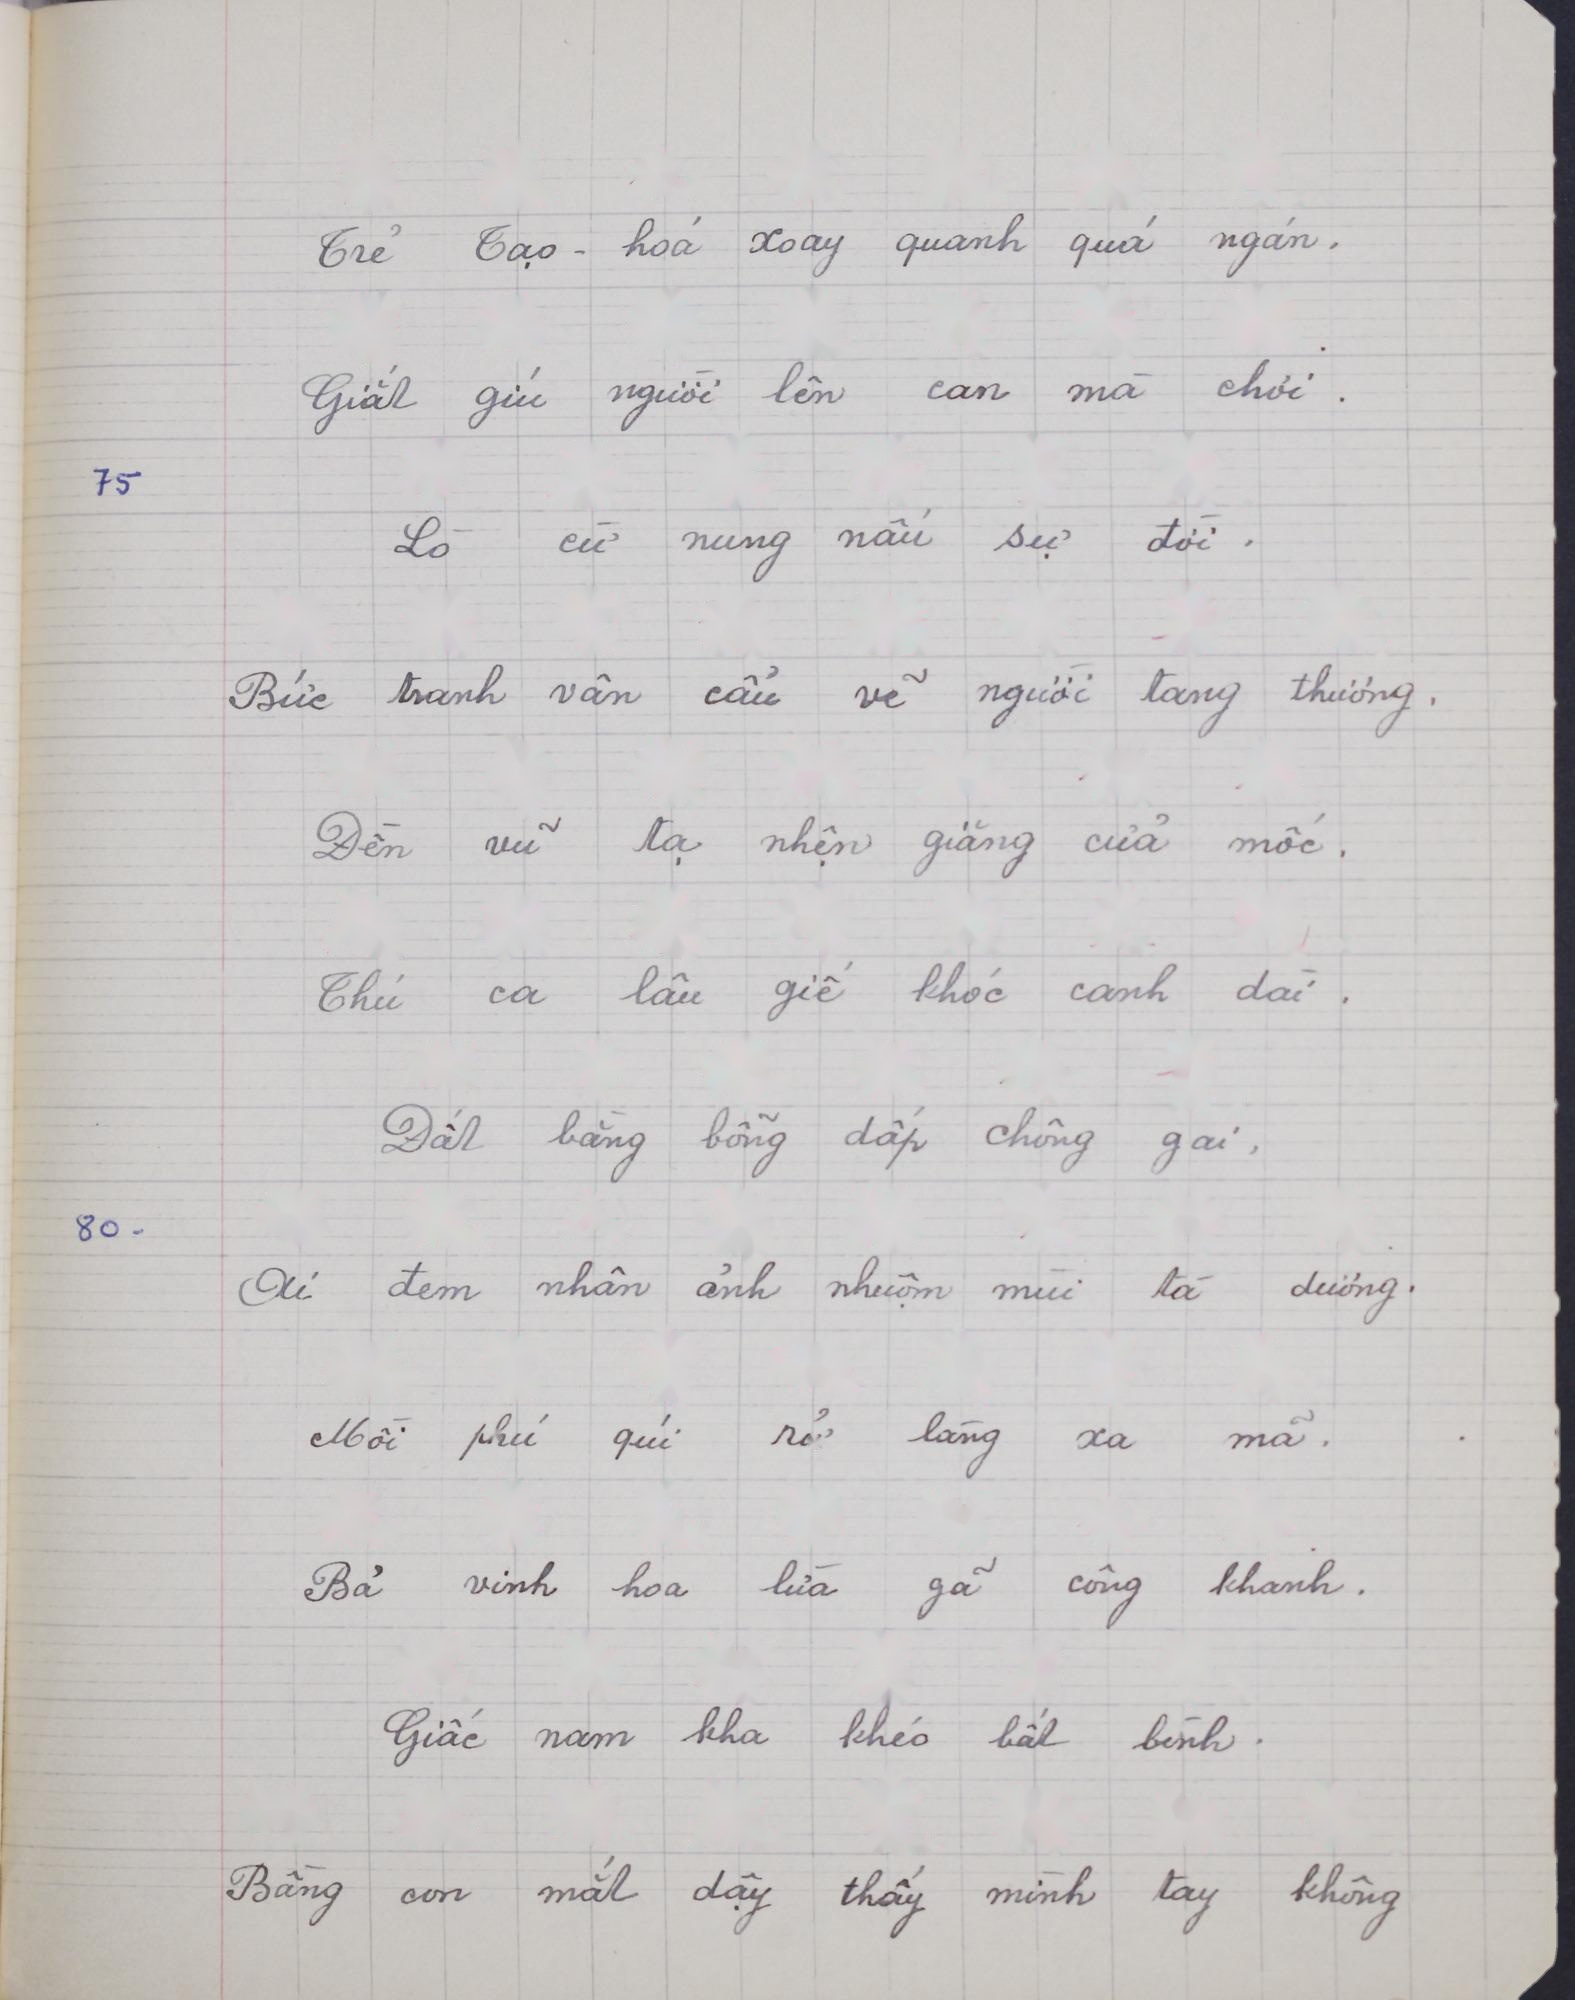 Trẻ Tạo-hoá xoay quanh quá ngán.
Giắt giú người lên can mà chơi.
75
Lò cừ nung nấu sự đời.
Bức tranh vân cẩu vẽ người tang thương.
Đền vũ tạ nhện giăng cửa mốc.
Thú ca lâu giế khóc canh dài.
Đất bằng bỗng dấp chông gai,
80-
Ai đem nhân ảnh nhuộm mùi tà dương.
Mồi phú quí rở làng xa mã.
Bả vinh hoa lừa gã công khanh.
Giấc nam kha khéo bất bình.
Bằng con mắt dậy thấy mình tay không